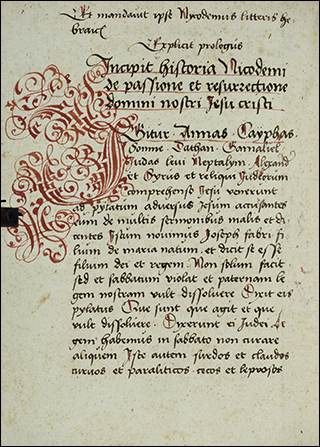 Et mandavit ipse Nycodemus litteris he
braicis
Explicit prologus
Incipit historia Nicodemi
de passione et resurrectione
domini nostri Jesu cristi
Igitur Annas Cayphas
Somne Dathan Gamaliel
Judas levi Neptalym Alexand
et Cyrus et reliqui Judeorum
comprehenso Jesu venerunt
ad pylatum adversus Jesum accusantes
eum de multis sermonibus malis et di
centes Istum novimus Joseph fabri fi
lium de maria natum et dicit se esse
filium dei et regem Non solum facit
sed et sabbatum violat et paternam le
gem nostram vult dissolvere Dixit eis
pylatus Que sunt que agit et que
vult dissolvere Dixerunt ei Judei Le
gem habemus in sabbato non curare
aliquem Iste autem surdos et claudos
curvos et paraliticos cecos et leprosos